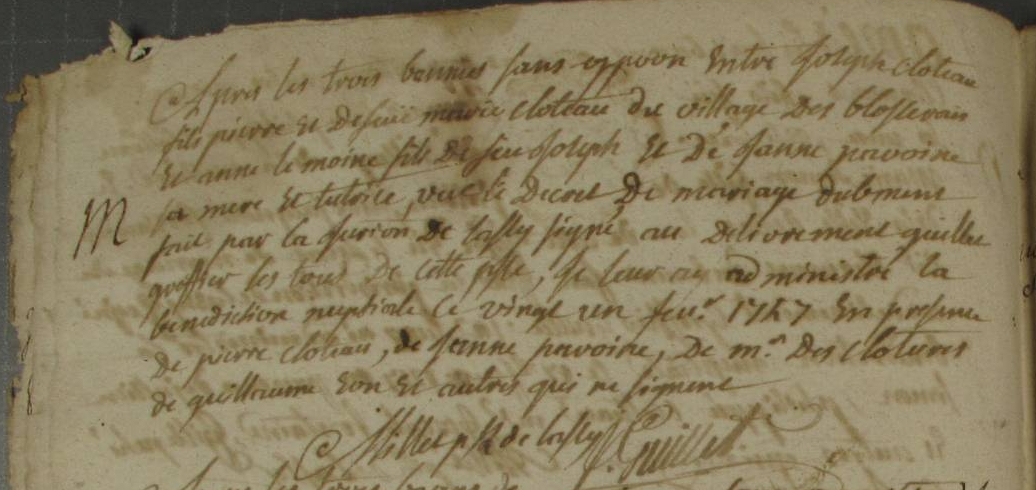 Apres les trois bannies sans oppoõn Entre Joseph cloteau
fils pierre et Defuië marie cloteau du village des blosserais
Et anne le moine fils De feu Joseph Et De Janne pavoine
sa mere Et tutrice, vue le Decret De mariage dubment
M
fait par la Jurïon De lassy signé au Delivrement guillet
greffier les tous De cette psse, Je leur ay administré la
benediction nuptiale ce vingt un feu.r 1747 En presence
de pierre cloteau, de Janne pavoine, De m.r Des Clotures
de guillaume Eon Et autres qui ne signent
Millet p de lassy Guillet